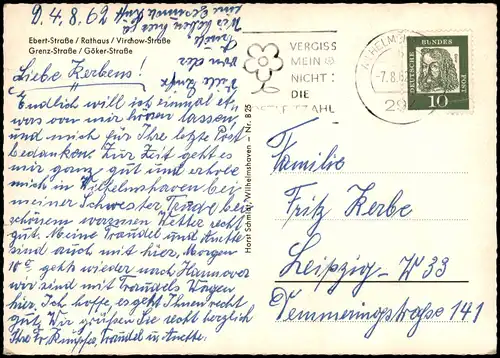 D. 4. 8. 62
Ebert-Straße / Rathaus / Virchow-Straße
Grenz-Straße / Göker-Straße
Liebe Kerbens!
Endlich will ich einmal etwas
von mir hören lassen,
und mich für Ihre letzte Post
bedanken. Zur Zeit geht es
mir ganz gut und erhole
mich in Wilhelmshaven bei
meiner Schwester
schönem warmen Wetter recht
gut. Meine Traudel und Anette
sind auch mit hier, Morgen
geht wieder nach Hannover
wir sind mit Traudels Wagen
hier, Ich hoffe, es geht Ihnen recht
gut. Wir grüßen Sie recht herzlich
Ihre Traudel u. Anette.
Horst Schmidt, Wilhelmshaven - Nr. 8 25
VERGISS
MEIN
NICHT
DIE
-7.8.62
DEUTSCHE BUNDESPOST
10
Familie
Fritz Kerbe
Leipzig-W 33
Demmeringstraße 141